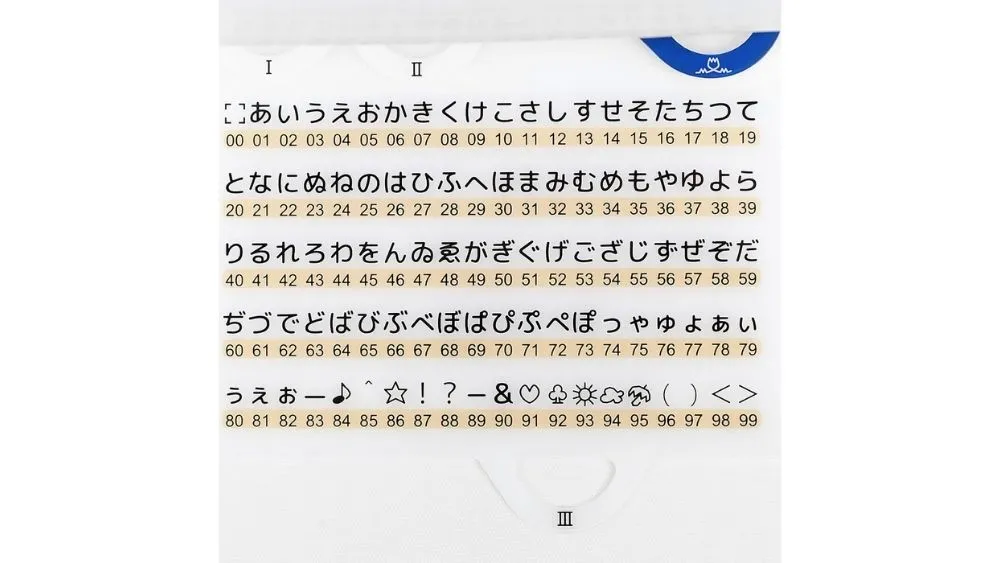 I II
[ ] あ い う え お か き く け こ さ し す せ そ た ち つ て
00 01 02 03 04 05 06 07 08 09 10 11 12 13 14 15 16 17 18 19
と な に ぬ ね の は ひ ふ へ ほ ま み む め も や ゆ よ ら
20 21 22 23 24 25 26 27 28 29 30 31 32 33 34 35 36 37 38 39
り る れ ろ わ を ん ゐ ゑ が ぎ ぐ げ ご ざ じ ず ぜ ぞ だ
40 41 42 43 44 45 46 47 48 49 50 51 52 53 54 55 56 57 58 59
ぢ づ で ど ば び ぶ べ ぼ ぱ ぴ ぷ ぺ ぽ っ ゃ ゅ ょ ぁ ぃ
60 61 62 63 64 65 66 67 68 69 70 71 72 73 74 75 76 77 78 79
ぅ ぇ ぉ ー ♪ ^ ☆ ! ? － & ♡ ♧ ☼ ( ) < >
80 81 82 83 84 85 86 87 88 89 90 91 92 93 94 95 96 97 98 99
III